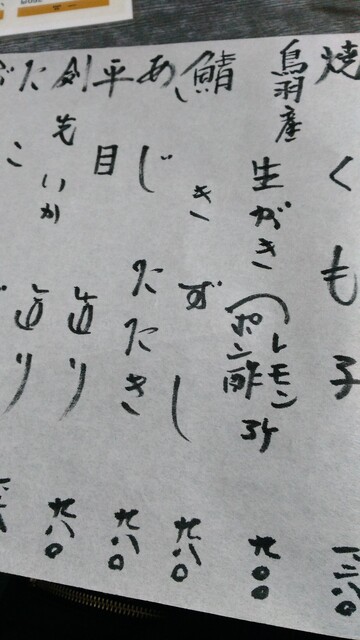 焼くもろ 一三八〇
鳥羽産 生がき (レモン ポン酢 3ケ 九〇〇
鯖 きずし 九八〇
あじ たたき 九八〇
平目
剣先いか 造り 九八〇
たこ 造り